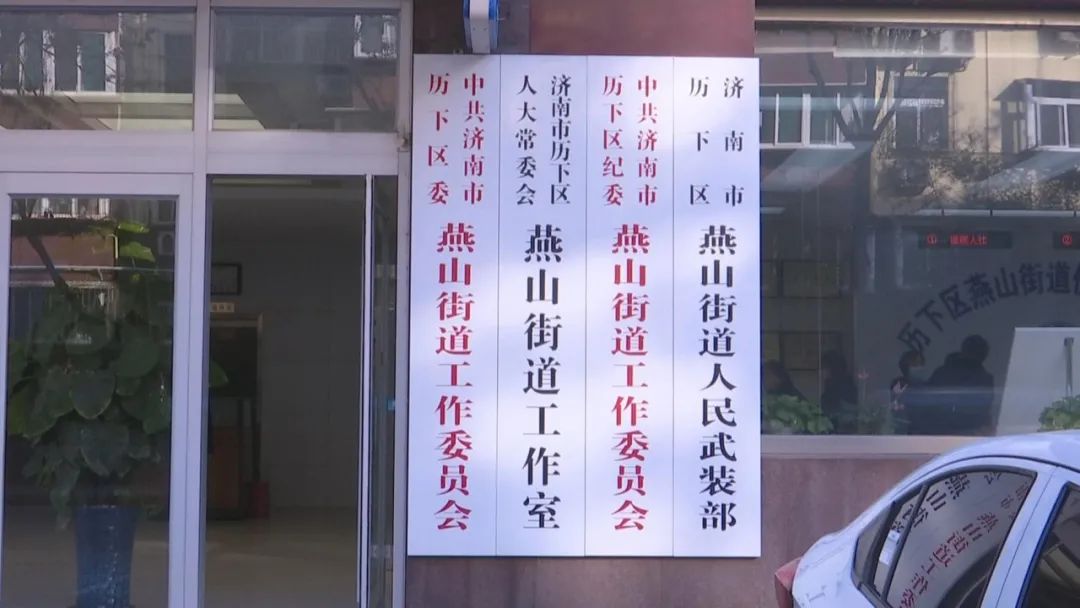 中共济南市
历下区委
燕山街道工作委员会
济南市历下区
人大常委会
燕山街道工作室
中共济南市
历下区纪委
燕山街道工作委员会
济南市
历下区
燕山街道人民武装部
历下区燕山街道
①
②